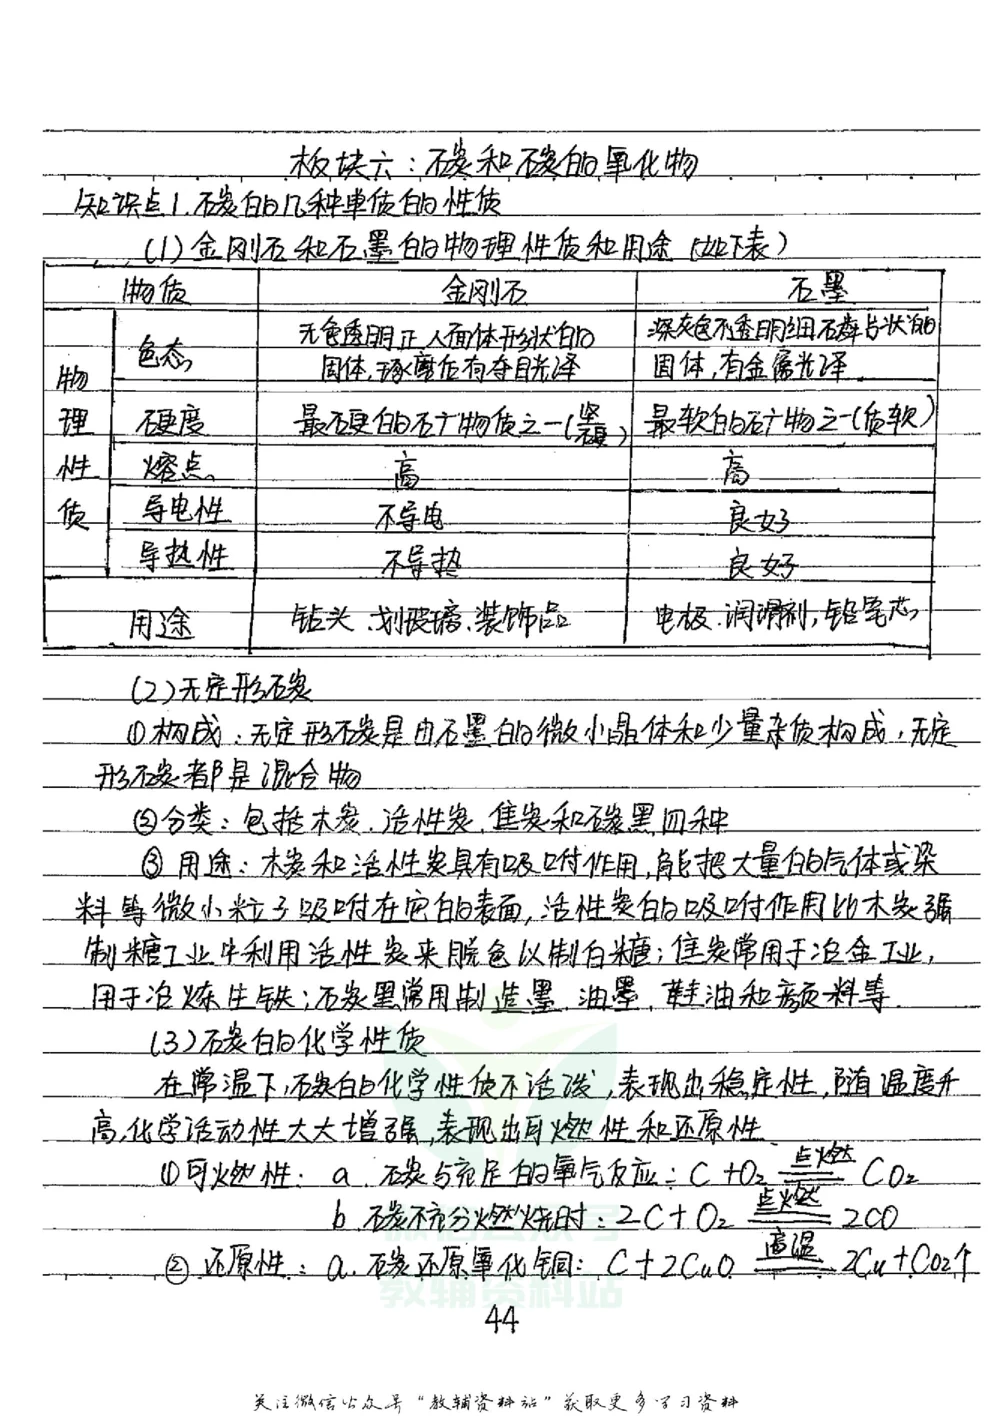 板块六：碳和碳的氧化物
知识点1.碳的几种单质的性质
(1)金刚石和石墨的物理性质和用途(如下表)
物质 金刚石 石墨
物理性质
色态 无色透明正八面体形状的固体,琢磨后有夺目光泽 深灰色不透明细鳞片状的固体,有金属光泽
硬度 最硬的矿物质之一(坚硬) 最软的矿物之一(质软)
熔点 高 高
导电性 不导电 良好
导热性 不导热 良好
用途 钻头、划玻璃、装饰品 电极、润滑剂,铅笔芯
(2)无定形碳
①构成:无定形碳是由石墨的微小晶体和少量杂质构成,无定
形碳都是混合物
②分类:包括木炭、活性炭、焦炭和碳黑四种
③用途:木炭和活性炭具有吸附作用,能把大量的气体或染
料等微小粒子吸附在它的表面,活性炭的吸附作用比木炭强
制糖工业中利用活性炭来脱色以制白糖;焦炭常用于冶金工业,
用于冶炼生铁;碳黑常用制造墨、油墨、鞋油和颜料等.
(3)碳的化学性质
在常温下,碳的化学性质不活泼,表现出稳定性,随温度升
高,化学活动性大大增强,表现出可燃性和还原性
①可燃性: a.碳与充足的氧气反应: C+O₂ 点燃 CO₂
b.碳不充分燃烧时: 2C+O₂ 点燃 2CO
②还原性: a.碳还原氧化铜: C+2CuO 高温 2Cu+CO₂↑
微信公众号
教辅资料站
44
关注微信公众号“教辅资料站”获取更多学习资料